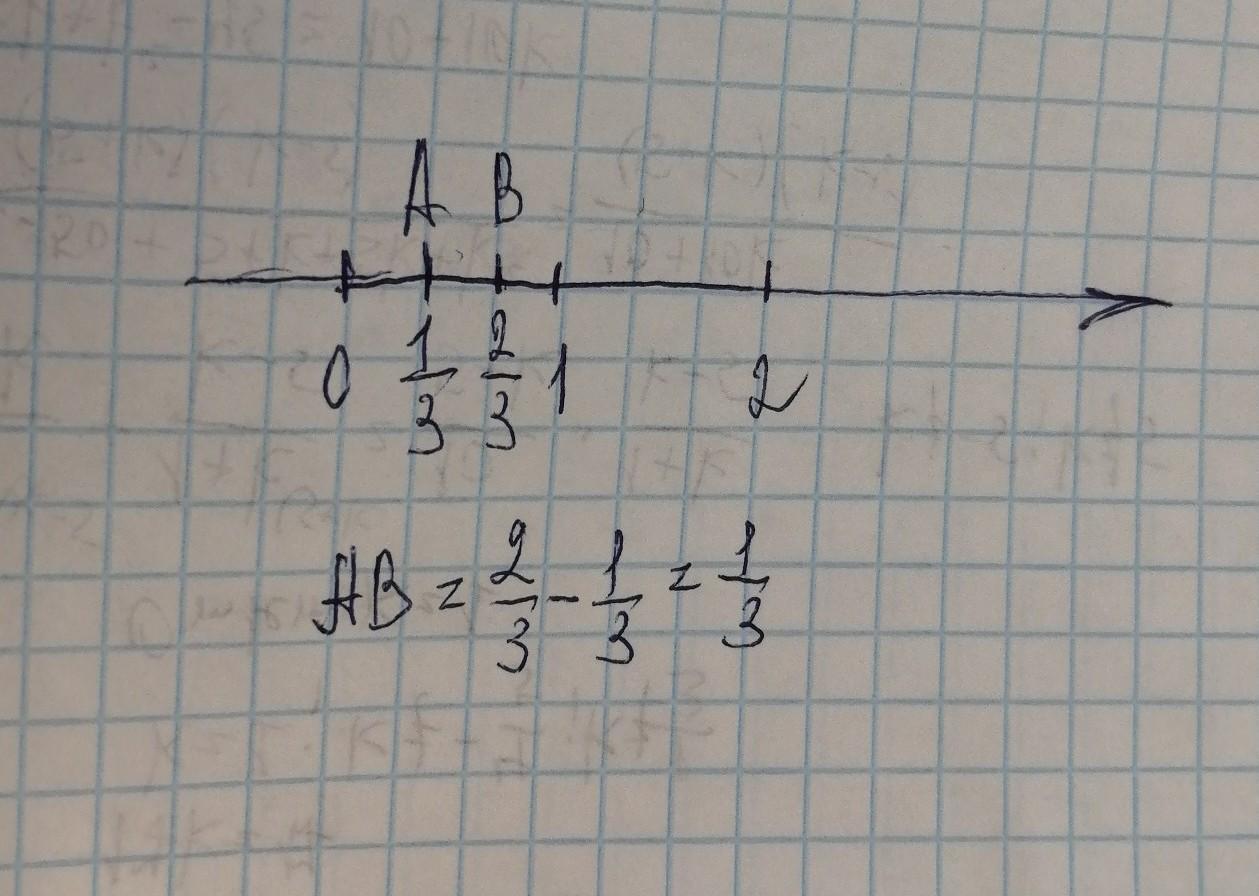 A B
0 1/3 2/3 1 2
AB = 2/3 - 1/3 = 1/3